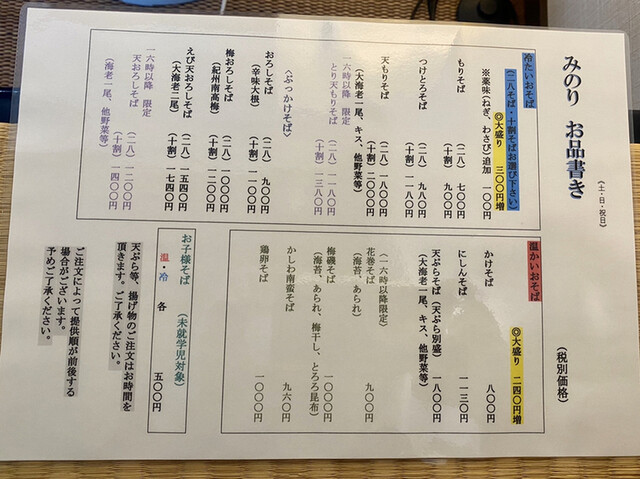 みのり お品書き
(土・日・祝日)
(税別価格)
冷たいおそば
(二八そば・十割そばお選び下さい)
◎大盛り 三〇〇円増
※薬味(ねぎ、わさび)追加 一〇〇円
もりそば (二八) 七〇〇円
(十割) 九〇〇円
つけとろそば (二八) 九八〇円
(十割) 一一八〇円
天もりそば (二八) 一八〇〇円
(大海老一尾、キス、他野菜等) (十割) 二〇〇〇円
一六時以降 限定
とり天もりそば (二八) 一一八〇円
(十割) 一三八〇円
〈ぶっかけそば〉
おろしそば (二八) 九〇〇円
(辛味大根) (十割) 一一〇〇円
梅おろしそば (二八) 一〇〇〇円
(紀州南高梅) (十割) 一二〇〇円
えび天おろしそば (二八) 一五四〇円
(大海老二尾) (十割) 一七四〇円
一六時以降 限定
天おろしそば (二八) 一二〇〇円
(海老一尾、他野菜等) (十割) 一四〇〇円
温かいおそば
◎大盛り 二四〇円増
かけそば 八〇〇円
にしんそば 一一三〇円
天ぷらそば(天ぷら別盛) 一八〇〇円
(大海老一尾、キス、他野菜等)
(一六時以降限定)
花巻そば 九〇〇円
(海苔、あられ)
梅磯そば 一〇〇〇円
(海苔、あられ、梅干し、とろろ昆布)
かしわ南蛮そば 九六〇円
鶏卵そば 一〇〇〇円
お子様そば (未就学児対象)
温・冷 各 五〇〇円
天ぷら等、揚げ物のご注文はお時間を
頂きます。ご了承ください。
ご注文によって提供順が前後する
場合がございます。
予めご了承ください。